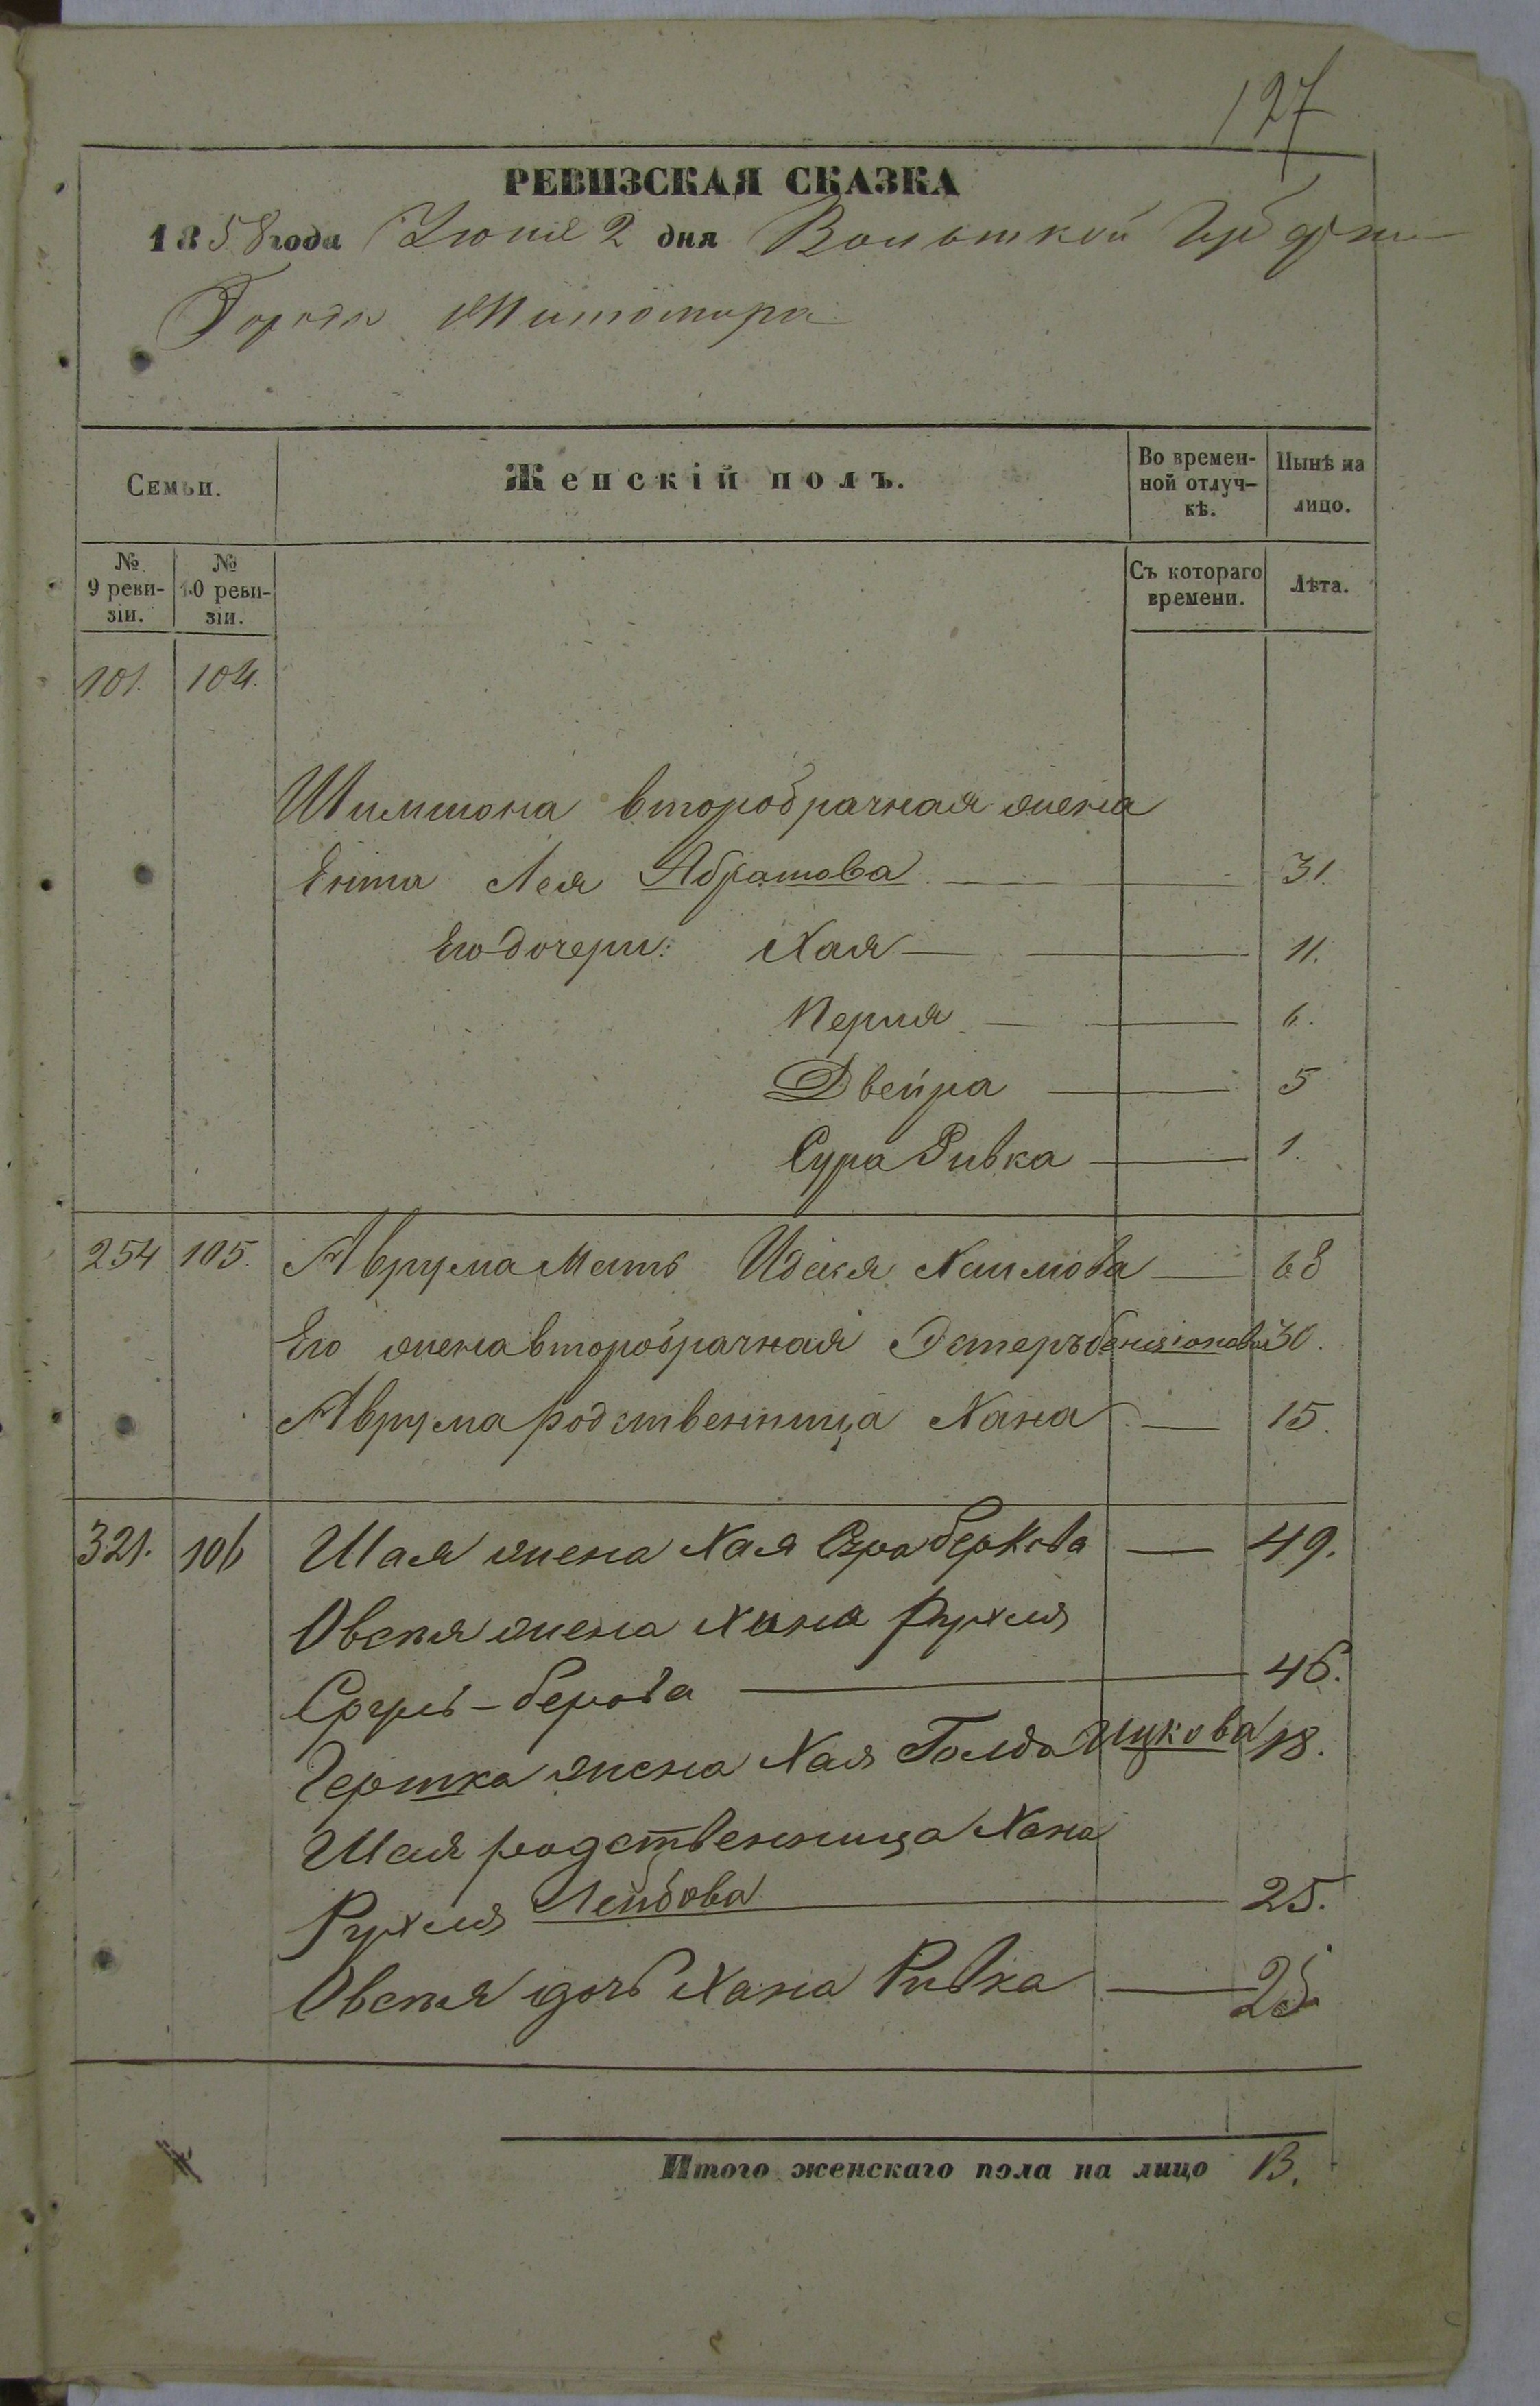 127
РЕВИЗСКАЯ СКАЗКА
1858 года Июня 2 дня Волынской Губернии
Города Житомира
Семьи.
Женскій полъ.
Во времен-
ной отлуч-
кѣ.
Нынѣ на
лицо.
№
9 реви-
зіи.
№
10 реви-
зіи.
Съ котораго
времени.
Лѣта.
101. 104.
Шимшона второбрачная жена
Ента Лея Абрамова 31.
Его дочери: Хая 11.
Перля 6.
Двейра 5
Сура Ривка 1.
254 105. Аврума мать Хаимова 68
Его жена второбрачная Эстеръ Бенціонова 30.
Аврума родственница Хана 15.
321. 106 Шая жена Хая Сура Беркова 49.
Овсея жена Хана Рухля
Сруль-Берова 46.
Гершка жена Хая Голда Ицкова 18.
Шая родственница Хана
Рухля Лейбова 25.
Овсея дочь Хана Ривка 25
Итого женскаго пола на лицо 13.